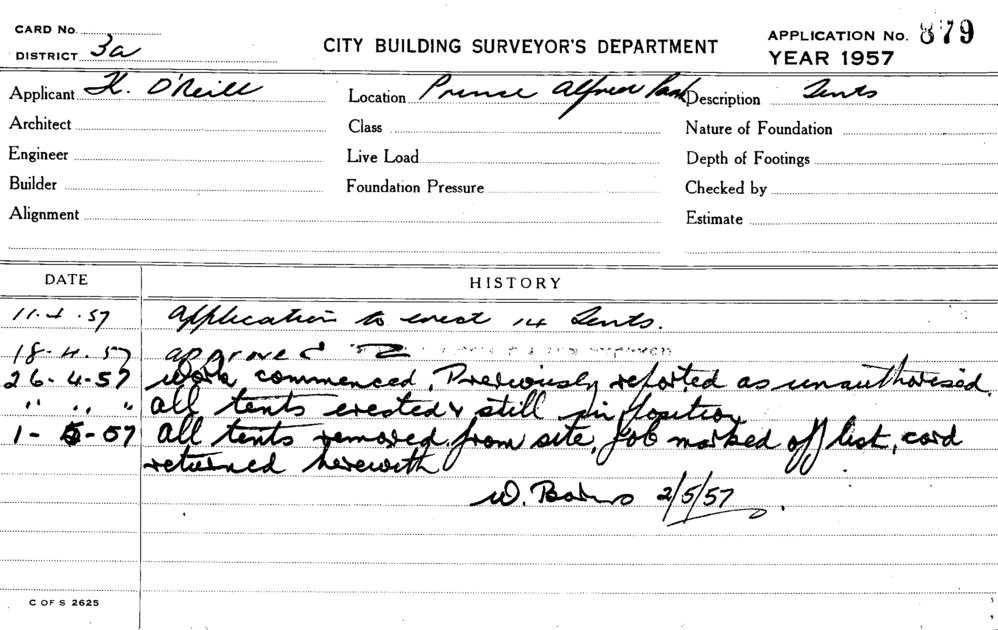 CARD No.
DISTRICT 3a
CITY BUILDING SURVEYOR'S DEPARTMENT
APPLICATION No. 879
YEAR 1957
Applicant K. O'Neill Location Prince Alfred Park Description Tents
Architect Class Nature of Foundation
Engineer Live Load Depth of Footings
Builder Foundation Pressure Checked by
Alignment Estimate
DATE HISTORY
11.4.57 Application to erect 14 Tents.
18.4.57 approved
26-4-57 Work commenced, Previously reported as unauthorised
" " " all tents erected & still in position
1-5-57 all tents removed from site, job marked off list, card
returned herewith
W. 2/5/57
C OF S 2625